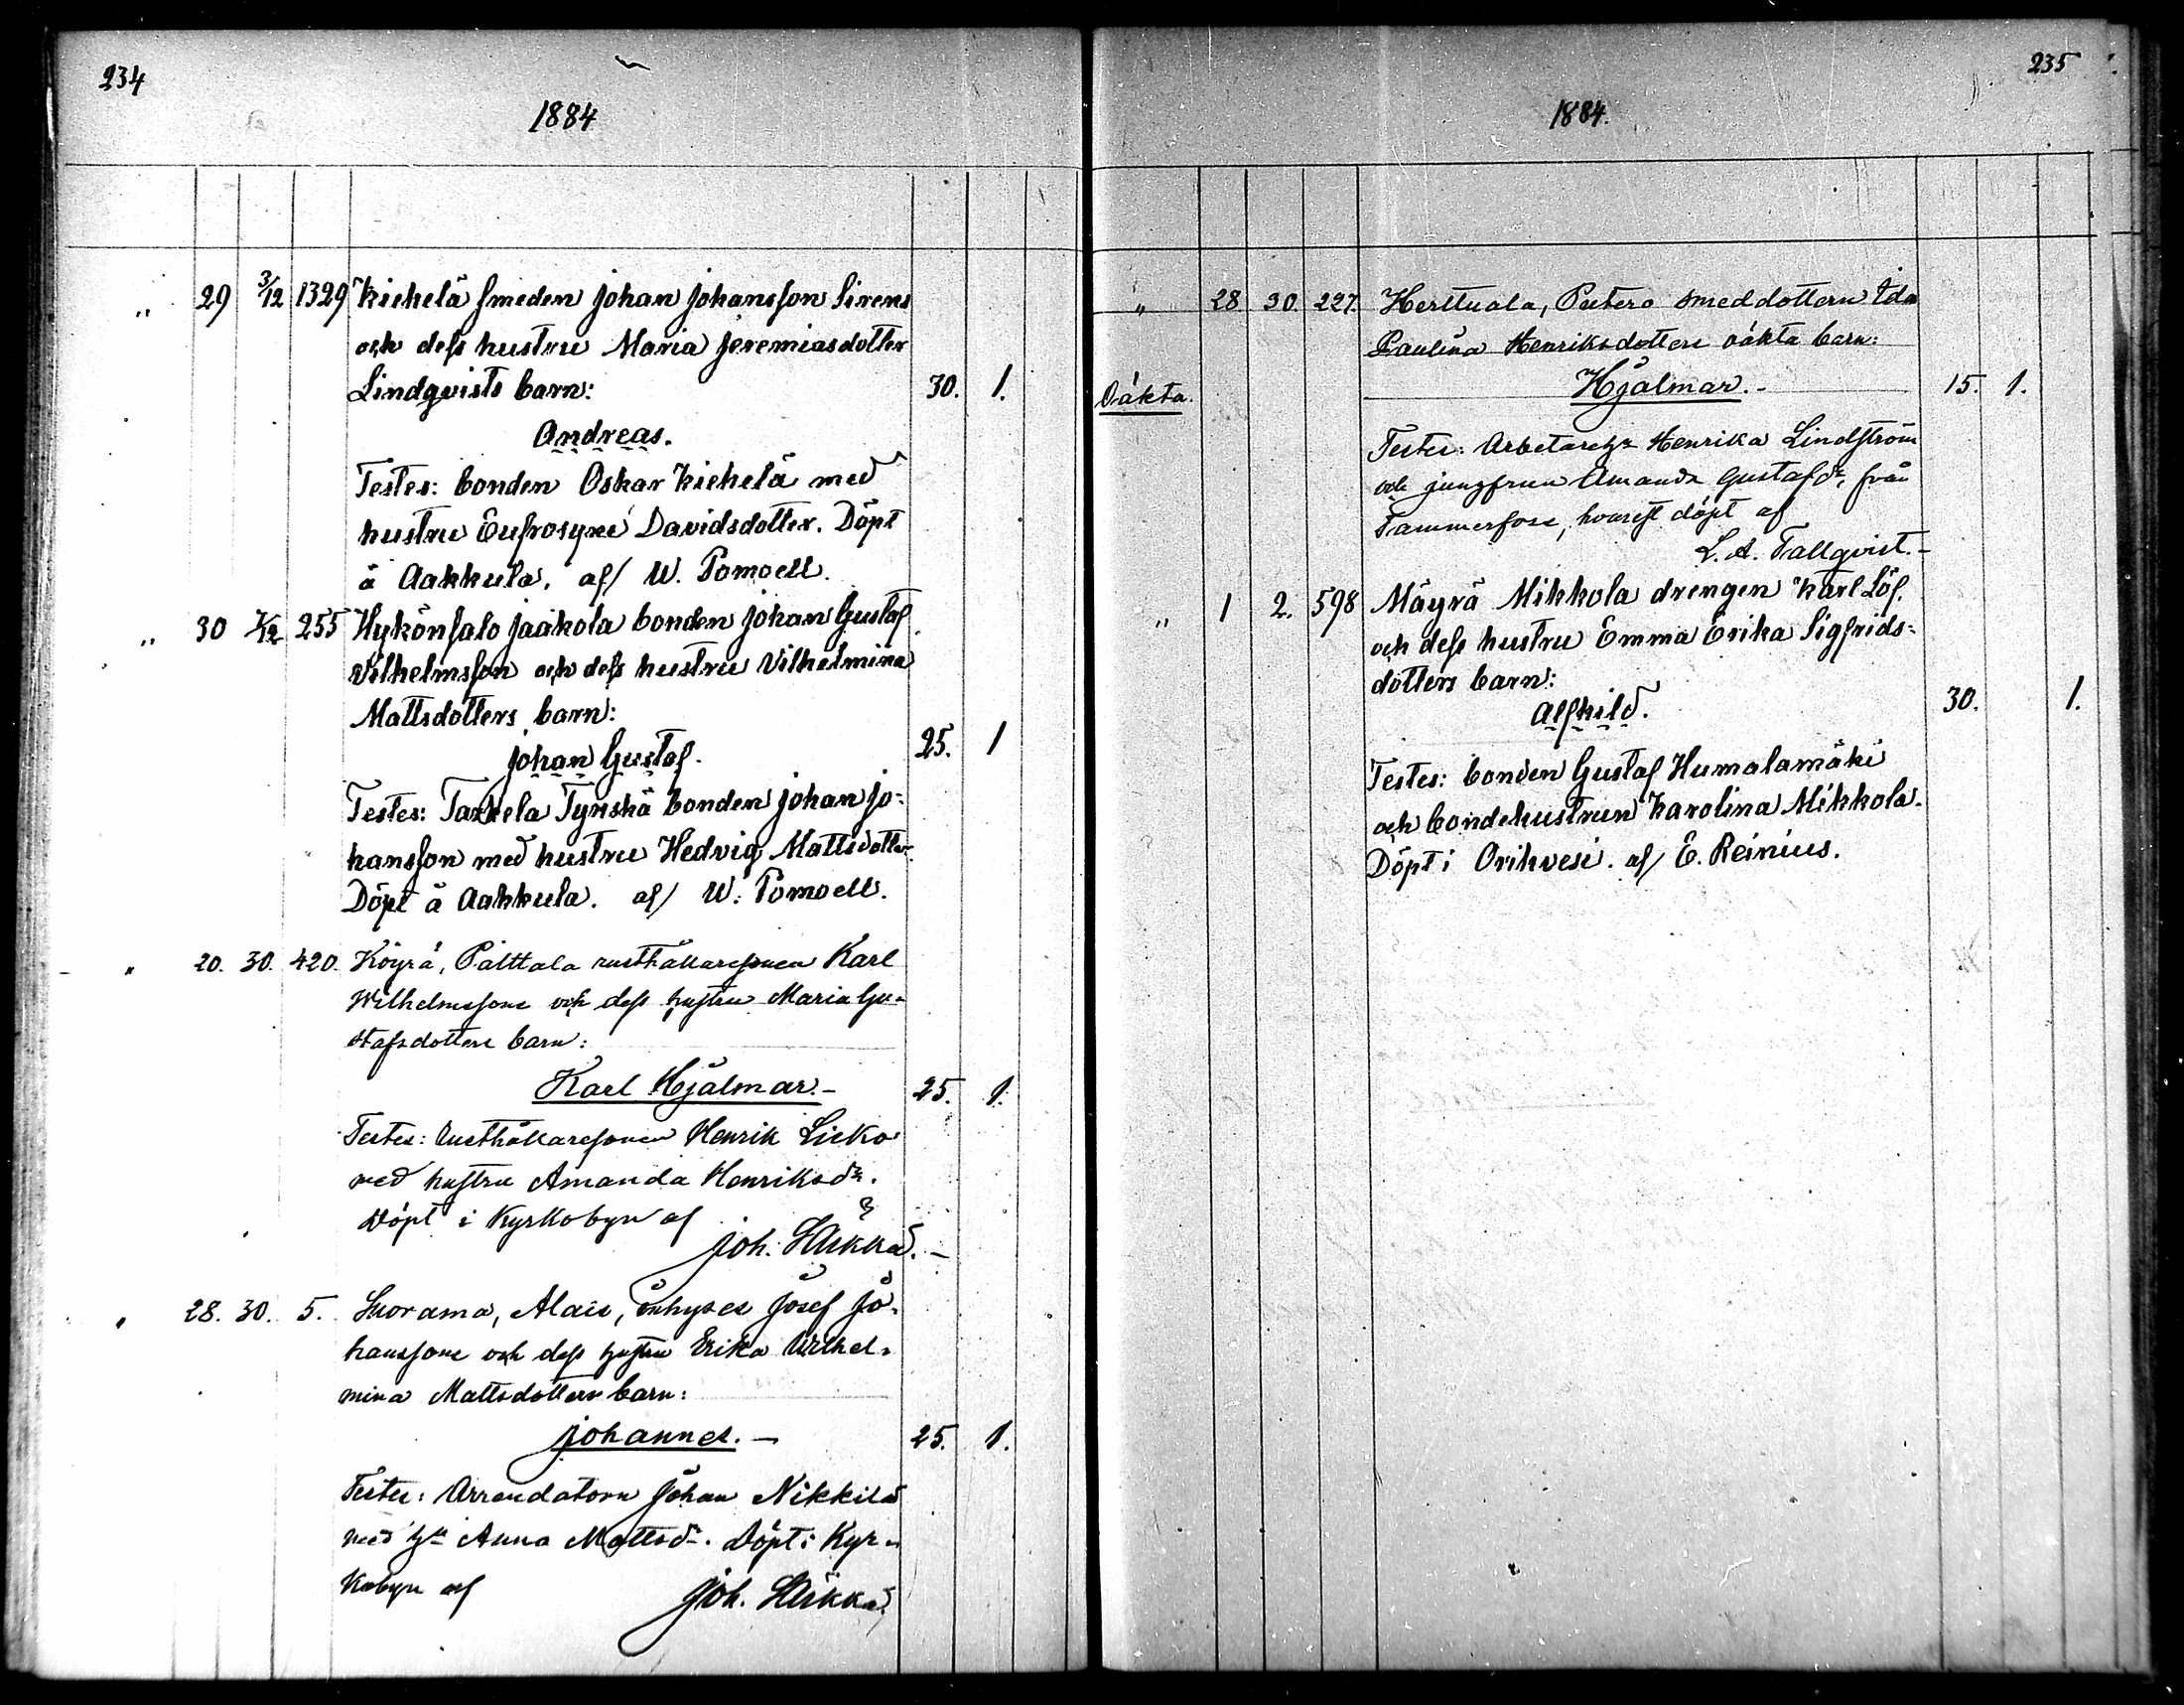 234
1884
„ 29 3/12 1329 Kiekelä smeden Johan Johansson Sirens
och dess hustru Maria Jeremiasdotter
Lindqvists barn: 30. 1.
Andreas.
Testes: bonden Oskar Kiekelä med
hustru Eufrosyne Davidsdotter. Döpt
å Aakkula. af/ W. Pomoell.
„ 30 7/12 255 Hykönsalo Jaakola bonden Johan Gustaf
Vilhelmsson och dess hustru Vilhelmina
Mattsdotters barn:
Johan Gustaf. 25. 1
Testes: Tarkela Tynskä bonden Johan Jo-
hansson med hustru Hedvig Mattsdotter.
Döpt å Aakkula. af/ W. Pomoell.
„ 20. 30. 420. Köyrä, Pälttala rusthållaresonen Karl
Wilhelmssons och dess hustru Maria Gu-
stafsdotters barn:
Karl Hjalmar.- 25. 1.
Testes: Rusthållaresonen Henrik Lieko
med hustru Amanda Henriksdr.
Döpt i Kyrkobyn af
Joh. Häkkä.-
„ 28. 30. 5. Suorama, Alais, inhyses Josef Jo-
hanssons och dess hustru Erika Wilhel-
mina Mattsdotters barn:
Johannes.- 25. 1.
Testes: Arrendatorn Johan Nikkilä
med hu Anna Mattsdr. Döpt i Kyr-
kobyn af Joh. Häkkä.
235
1884.
„ 28 30. 227. Herttuala, Peltero smeddottern Ida
Paulina Henriksdotters oäkta barn:
Oäkta. Hjalmar.- 15. 1.
Testes: Arbetareh Henrika Lindström
och jungfrun Amanda Gustafdr, från
Tammerfors, hvarest döpt af
L. A. Tallqvist.-
„ 1 2. 598 Mäyrä Mikkola drengen Karl Löf.
och dess hustru Emma Erika Sigfrids-
dotters barn:
Alfhild. 30. 1.
Testes: bonden Gustaf Humalamäki
och bondehustrun Karolina Mikkola.
Döpt i Orihvesi. af/ E. Reinius.